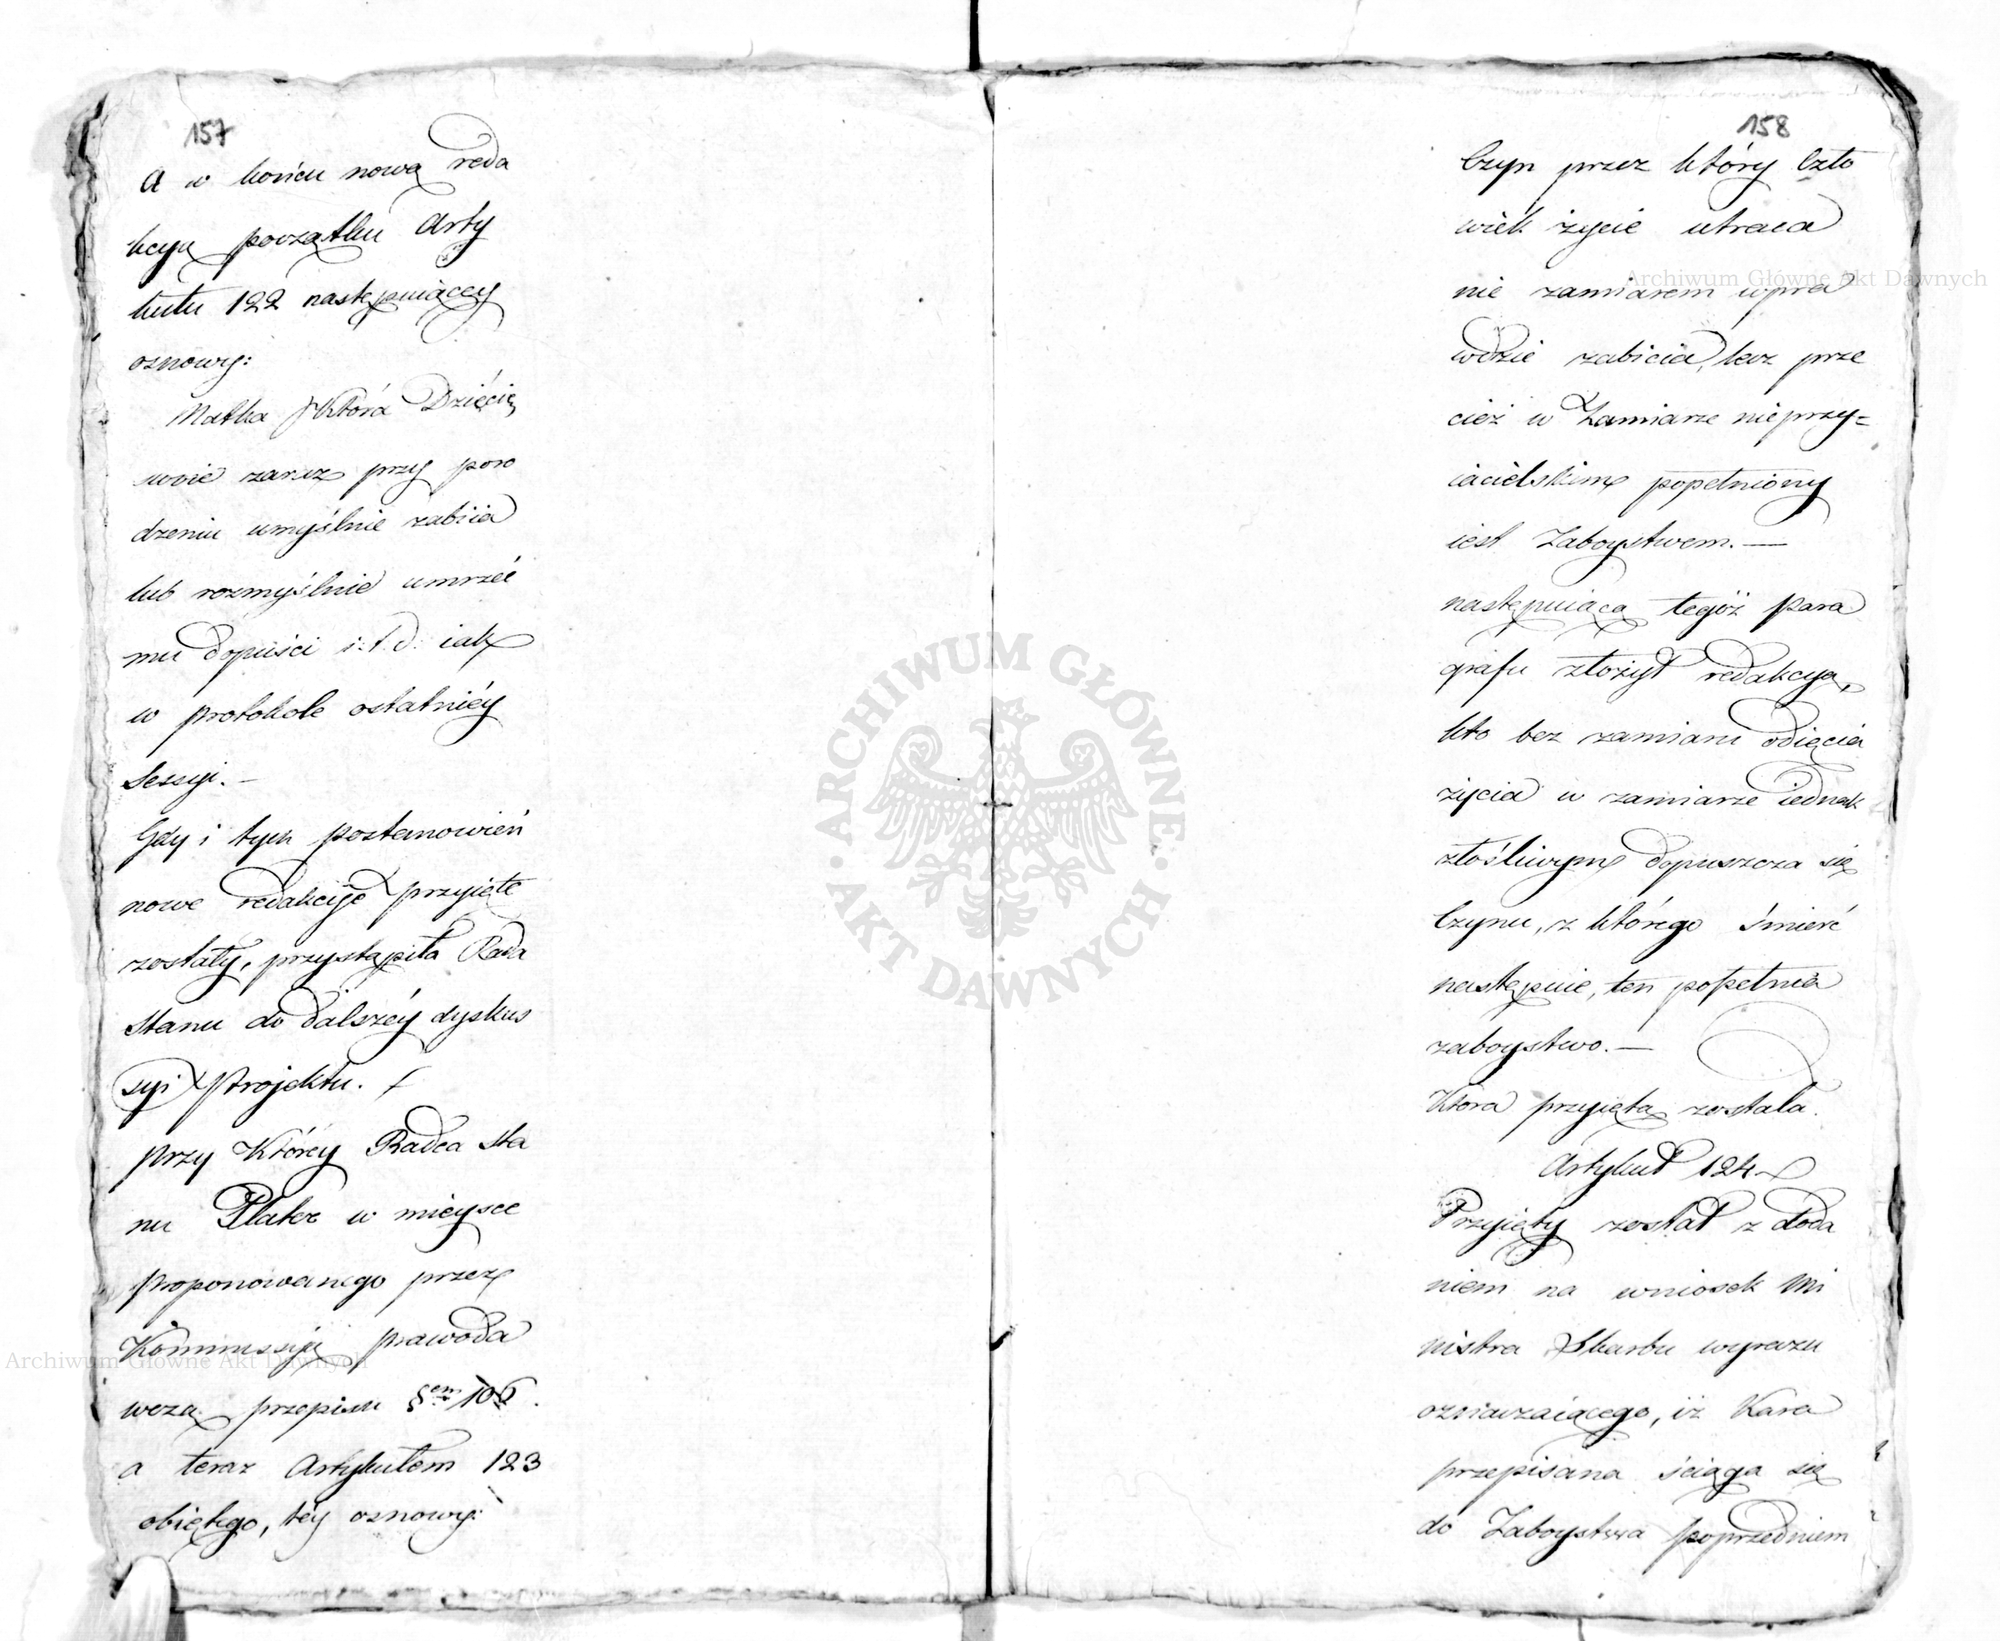 157
A w końcu nową reda
kcyą początku Arty
kułu 122 następuiącey
osnowy:
Matka która Dziécię
swoie zaraz przy poro
dzeniu umyślnie zabiia
lub rozmyślnie umrzéć
mu dopuści i: t. d: iak
w protokole ostatniéy
Sessyi. —
Gdy i tych postanowień
nowe redakcyje przyięte
zostały, przystąpiła Rada
Stanu do dalszéy dyskus
syi Projektu.
przy Któréy Radca Sta
nu Plater w mieysce
proponowanego przez
Kommissyą prawoda
wczą przepisu §em 106.
a teraz Artykułem 123
obiętego, téy osnowy:
158
Czyn przez który Czło
wiék życie utraca
nie zamiarem wpra
wdzie zabicia, lecz prze
cież w Zamiarze nieprzy=
iacielskim popełniony
iest Zaboystwem. —
następuiącą tegóż para
grafu złożył redakcyą,
kto bez zamiaru odięcia
życia w zamiarze iednak
złośliwym dopuszcza się
Czynu, z którego śmierć
następuie, ten popełnia
zaboystwo. —
Ktora przyięta została.
Artykuł 124
Przyięty został z doda
niem na wniosek Mi
nistra Skarbu wyrazu
oznaczaiącego, iż Kara
przepisana ściąga się
do Zaboystwa poprzedniem
ARCHIWUM GŁÓWNE · AKT DAWNYCH ·
Archiwum Główne Akt Dawnych
Archiwum Główne Akt Dawnych